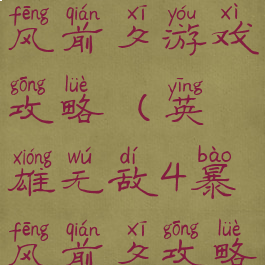 fēng qián xī yóu xì
风前夕游戏
gōng lüè yīng
攻略（英
xióng wú dí bào
雄无敌4暴
fēng qián xī gōng lüè
风前夕攻略